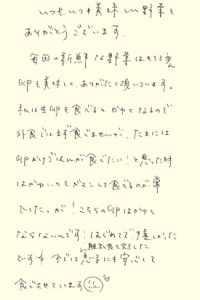 いつもいつも美味しい野菜を
ありがとうございます。
毎回の新鮮な野菜はもちろん
卵を美味しく、ありがたく頂いています。
私は生卵を食べるとかゆくなるので
外食ではまず食べませんが、たまには
卵かけごはんが食べたい！と思った時
はかゆいってガマンして食べるのが常
でした。が！こちらの卵はかゆく
ならないんです！はじめてで
離乳食を
ですが 今では息子にも安心して
食べさせています